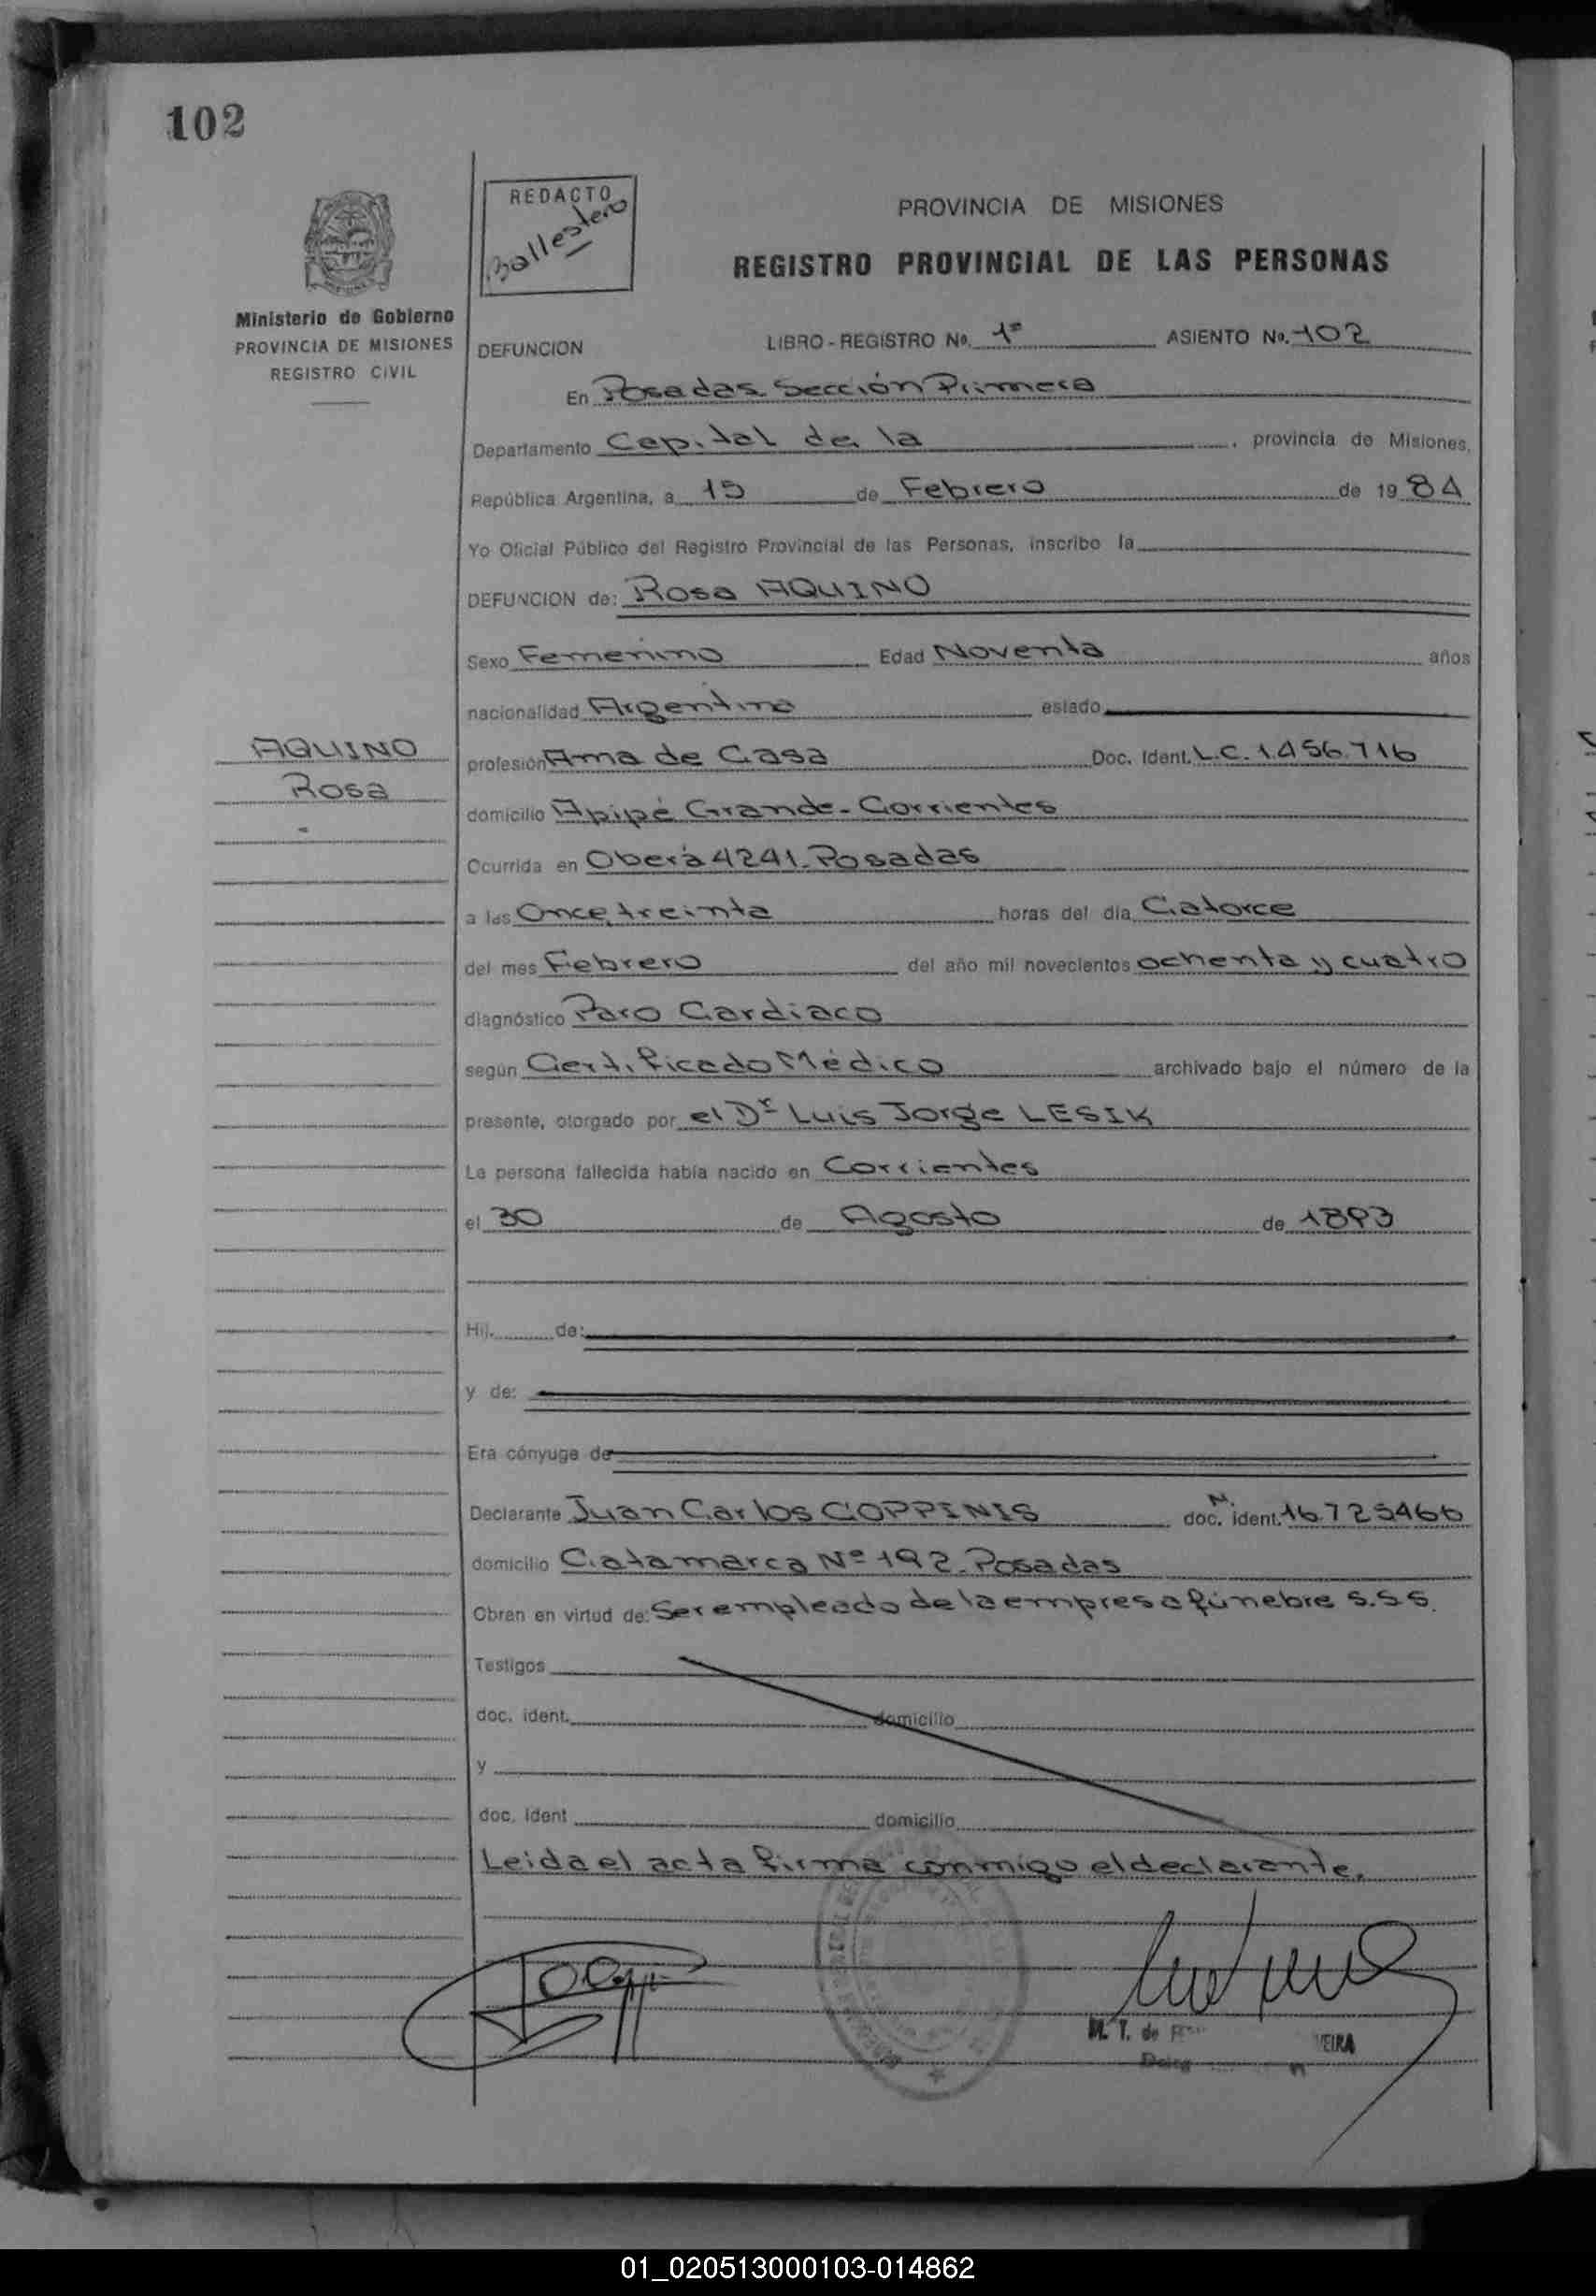 102
REDACTO
Ballestero
PROVINCIA DE MISIONES
REGISTRO PROVINCIAL DE LAS PERSONAS
Ministerio de Gobierno
PROVINCIA DE MISIONES
REGISTRO CIVIL
DEFUNCION LIBRO - REGISTRO No. 1º ASIENTO No. 102
En Posadas Sección Primera
Departamento Capital de la , provincia de Misiones,
República Argentina, a 15 de Febrero de 19 84
Yo Oficial Público del Registro Provincial de las Personas, inscribo la
DEFUNCION de: Rosa AQUINO
Sexo Femenino Edad Noventa años
nacionalidad Argentina estado
AQUINO
Rosa
profesión Ama de Casa Doc. Ident. L.C. 1.456.716
domicilio Apipé Grande - Corrientes
Ocurrida en Oberá 4241. Posadas
a las Once, treinta horas del día Catorce
del mes Febrero del año mil novecientos ochenta y cuatro
diagnóstico Paro Cardiaco
según Certificado Médico archivado bajo el número de la
presente, otorgado por el Dr Luis Jorge LESIK
La persona fallecida había nacido en Corrientes
el 30 de Agosto de 1893
Hij de:
y de:
Era cónyuge de
Declarante Juan Carlos COPPINIS doc. ident. N. 16725466
domicilio Catamarca Nº 192. Posadas
Obran en virtud de: Ser empleado de la empresa fúnebre S.S.S.
Testigos
doc. ident. domicilio
y
doc. ident domicilio
Leida el acta firma conmigo el declarante.
M. T. de
VEIRA
01_020513000103-014862